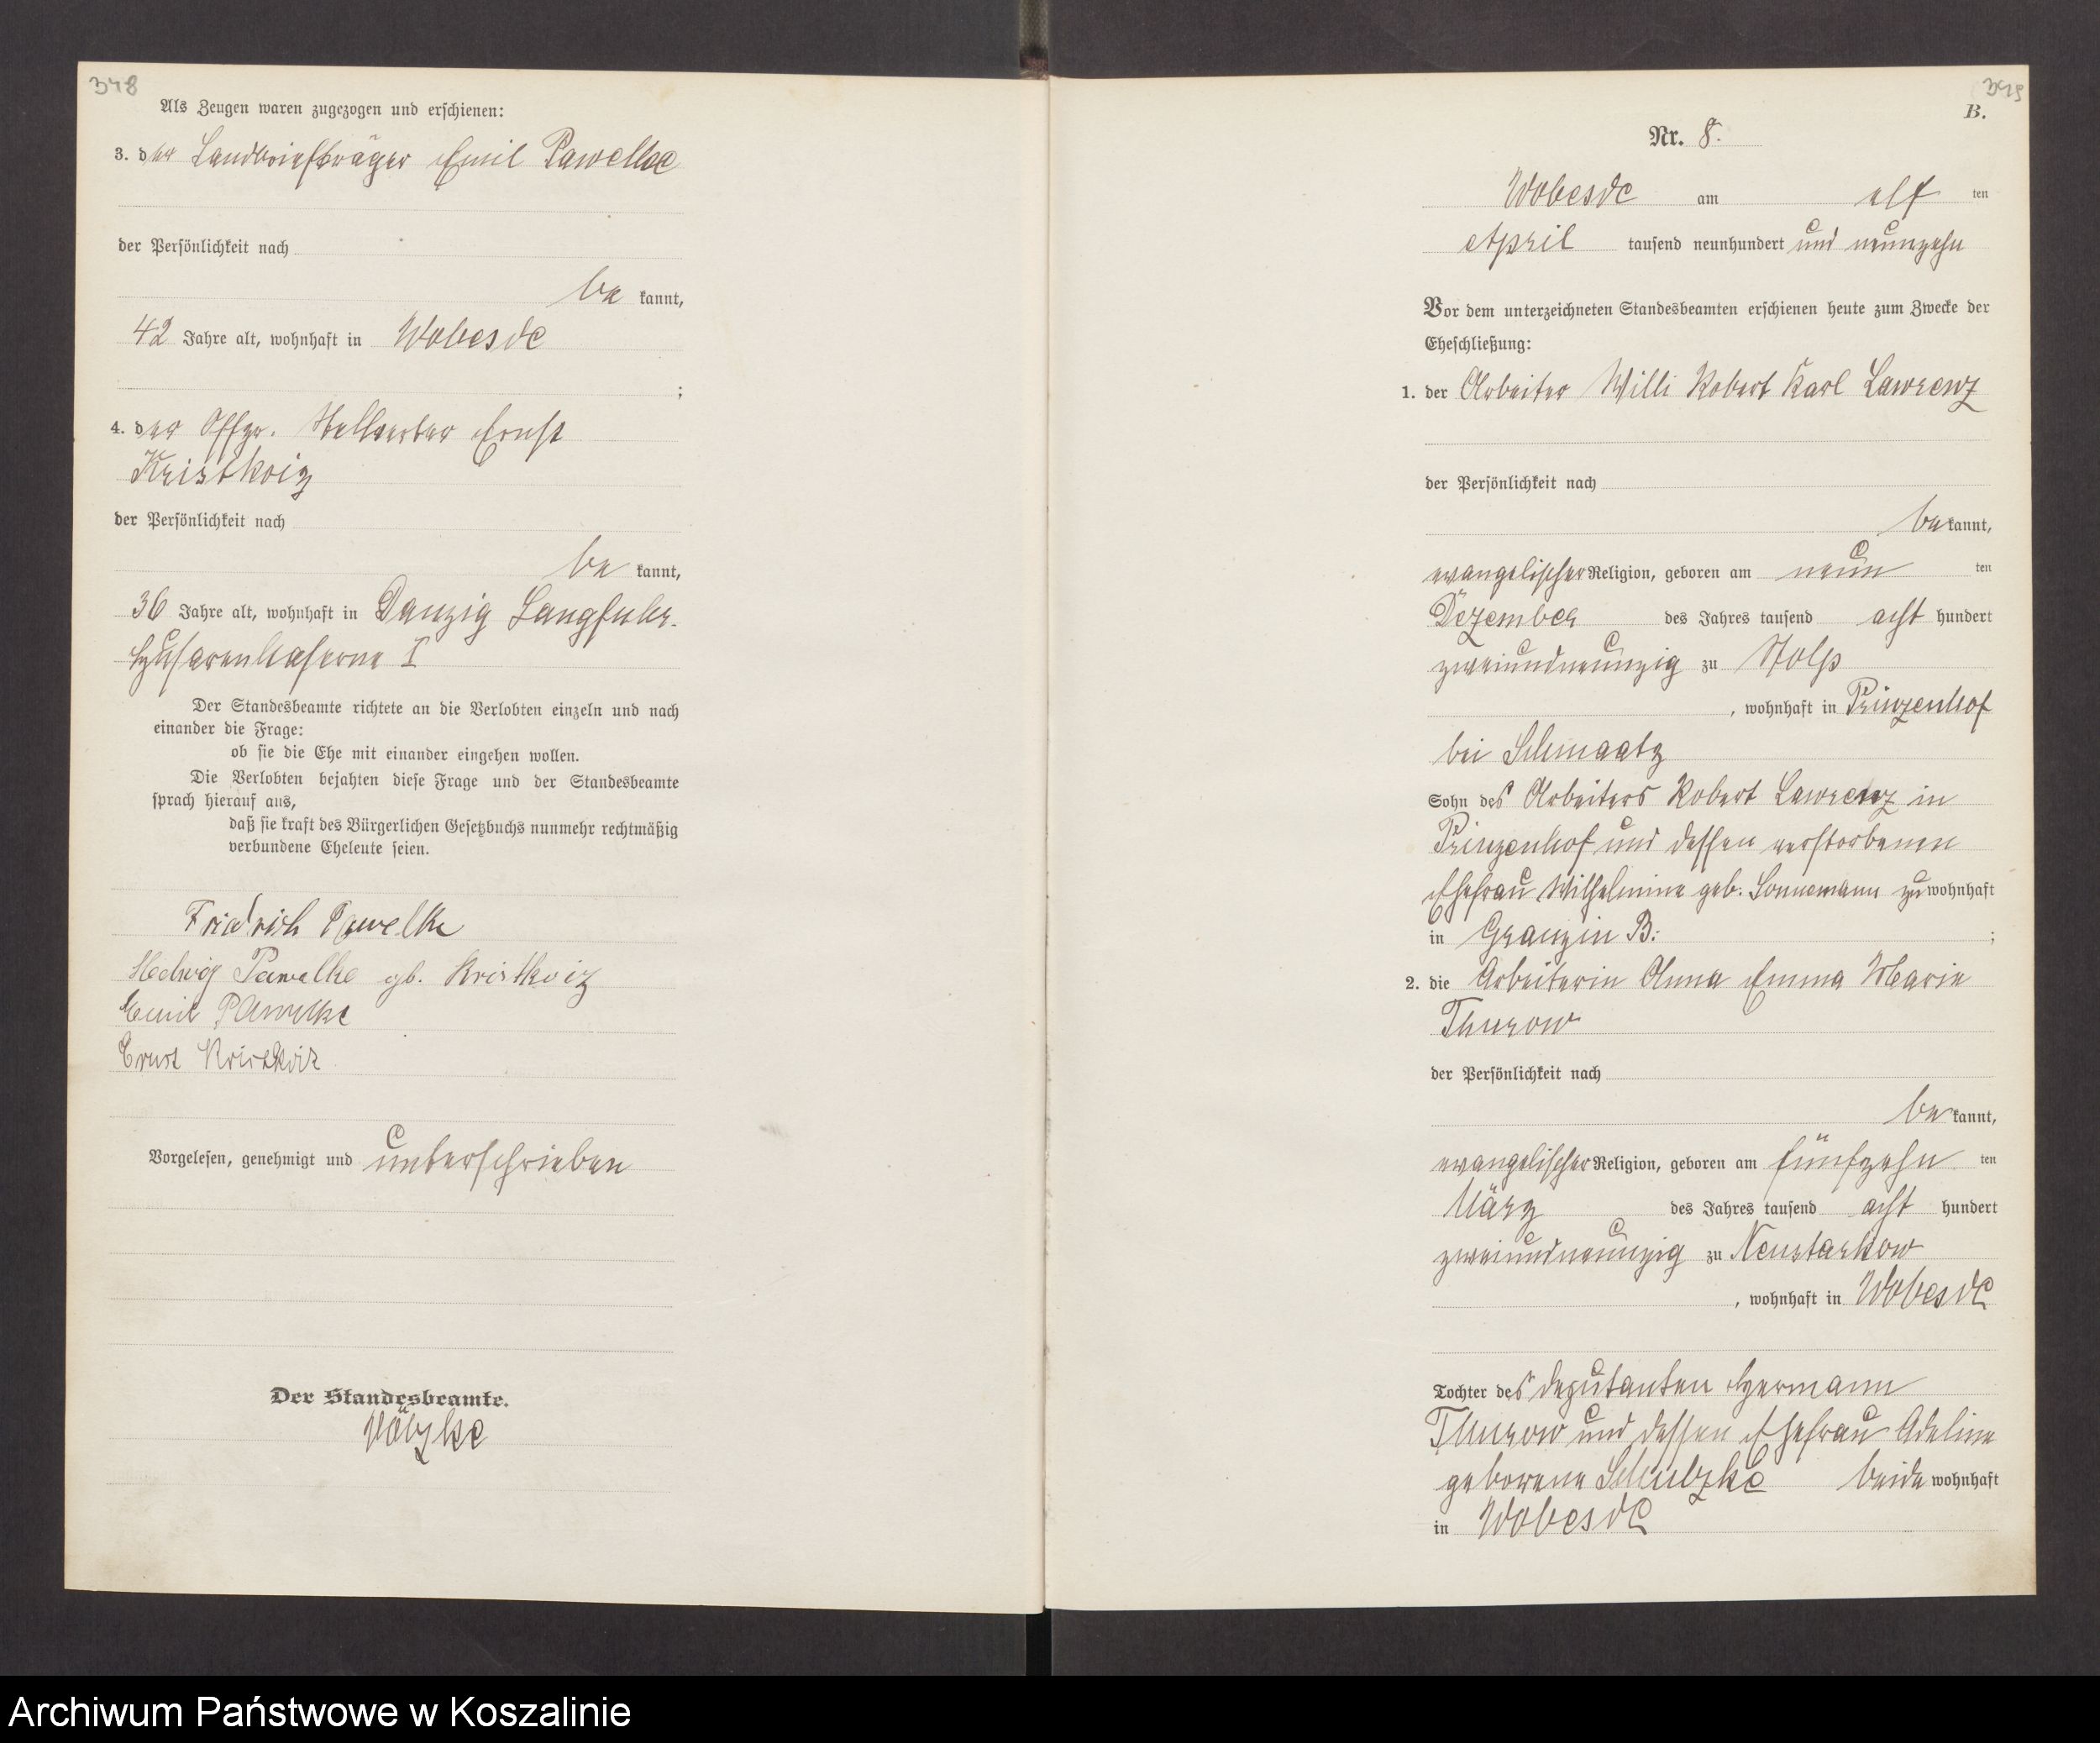 348
Als Zeugen waren zugezogen und erschienen:
3. der Landbriefträger Emil Pawelke
der Persönlichkeit nach
be kannt,
42 Jahre alt, wohnhaft in Wobesde
;
4. der Offzr. Stellverter Ernst
Kristkoiz
der Persönlichkeit nach
be kannt,
36 Jahre alt, wohnhaft in Danzig Langfuhr.
Husarenkaserne I
Der Standesbeamte richtete an die Verlobten einzeln und nach
einander die Frage:
ob sie die Ehe mit einander eingehen wollen.
Die Verlobten bejahten diese Frage und der Standesbeamte
sprach hierauf aus,
daß sie kraft des Bürgerlichen Gesetzbuchs nunmehr rechtmäßig
verbundene Eheleute seien.
Friedrich Pawelke
Hedwig Pawelke gb. Kristkoiz
Emil Pawelke
Ernst Kristkoiz
Vorgelesen, genehmigt und unterschrieben
Der Standesbeamte.
349
B.
Nr. 8.
Wobesde am elf ten
April tausend neunhundert und neunzehn
Vor dem unterzeichneten Standesbeamten erschienen heute zum Zwecke der
Eheschließung:
1. der Arbeiter Willi Robert Karl Lawrenz
der Persönlichkeit nach
be kannt,
evangelischer Religion, geboren am neun ten
Dezember des Jahres tausend acht hundert
zweiundneunzig zu Stolp
, wohnhaft in Prinzenhof
bei Schmaatz
Sohn des Arbeiters Robert Lawrenz in
Prinzenhof und dessen verstorbenen
Ehefrau Wilhelmine geb. Sonnemann zu wohnhaft
in Granzin B. ;
2. die Arbeiterin Anna Emma Marie
Thurow
der Persönlichkeit nach
be kannt,
evangelischer Religion, geboren am fünfzehn ten
März des Jahres tausend acht hundert
zweiundneunzig zu Neustarkow
, wohnhaft in Wobesde
Tochter des Deputanten Hermann
Thurow und dessen Ehefrau Adeline
geborene Schulzke beide wohnhaft
in Wobesde
Archiwum Państwowe w Koszalinie